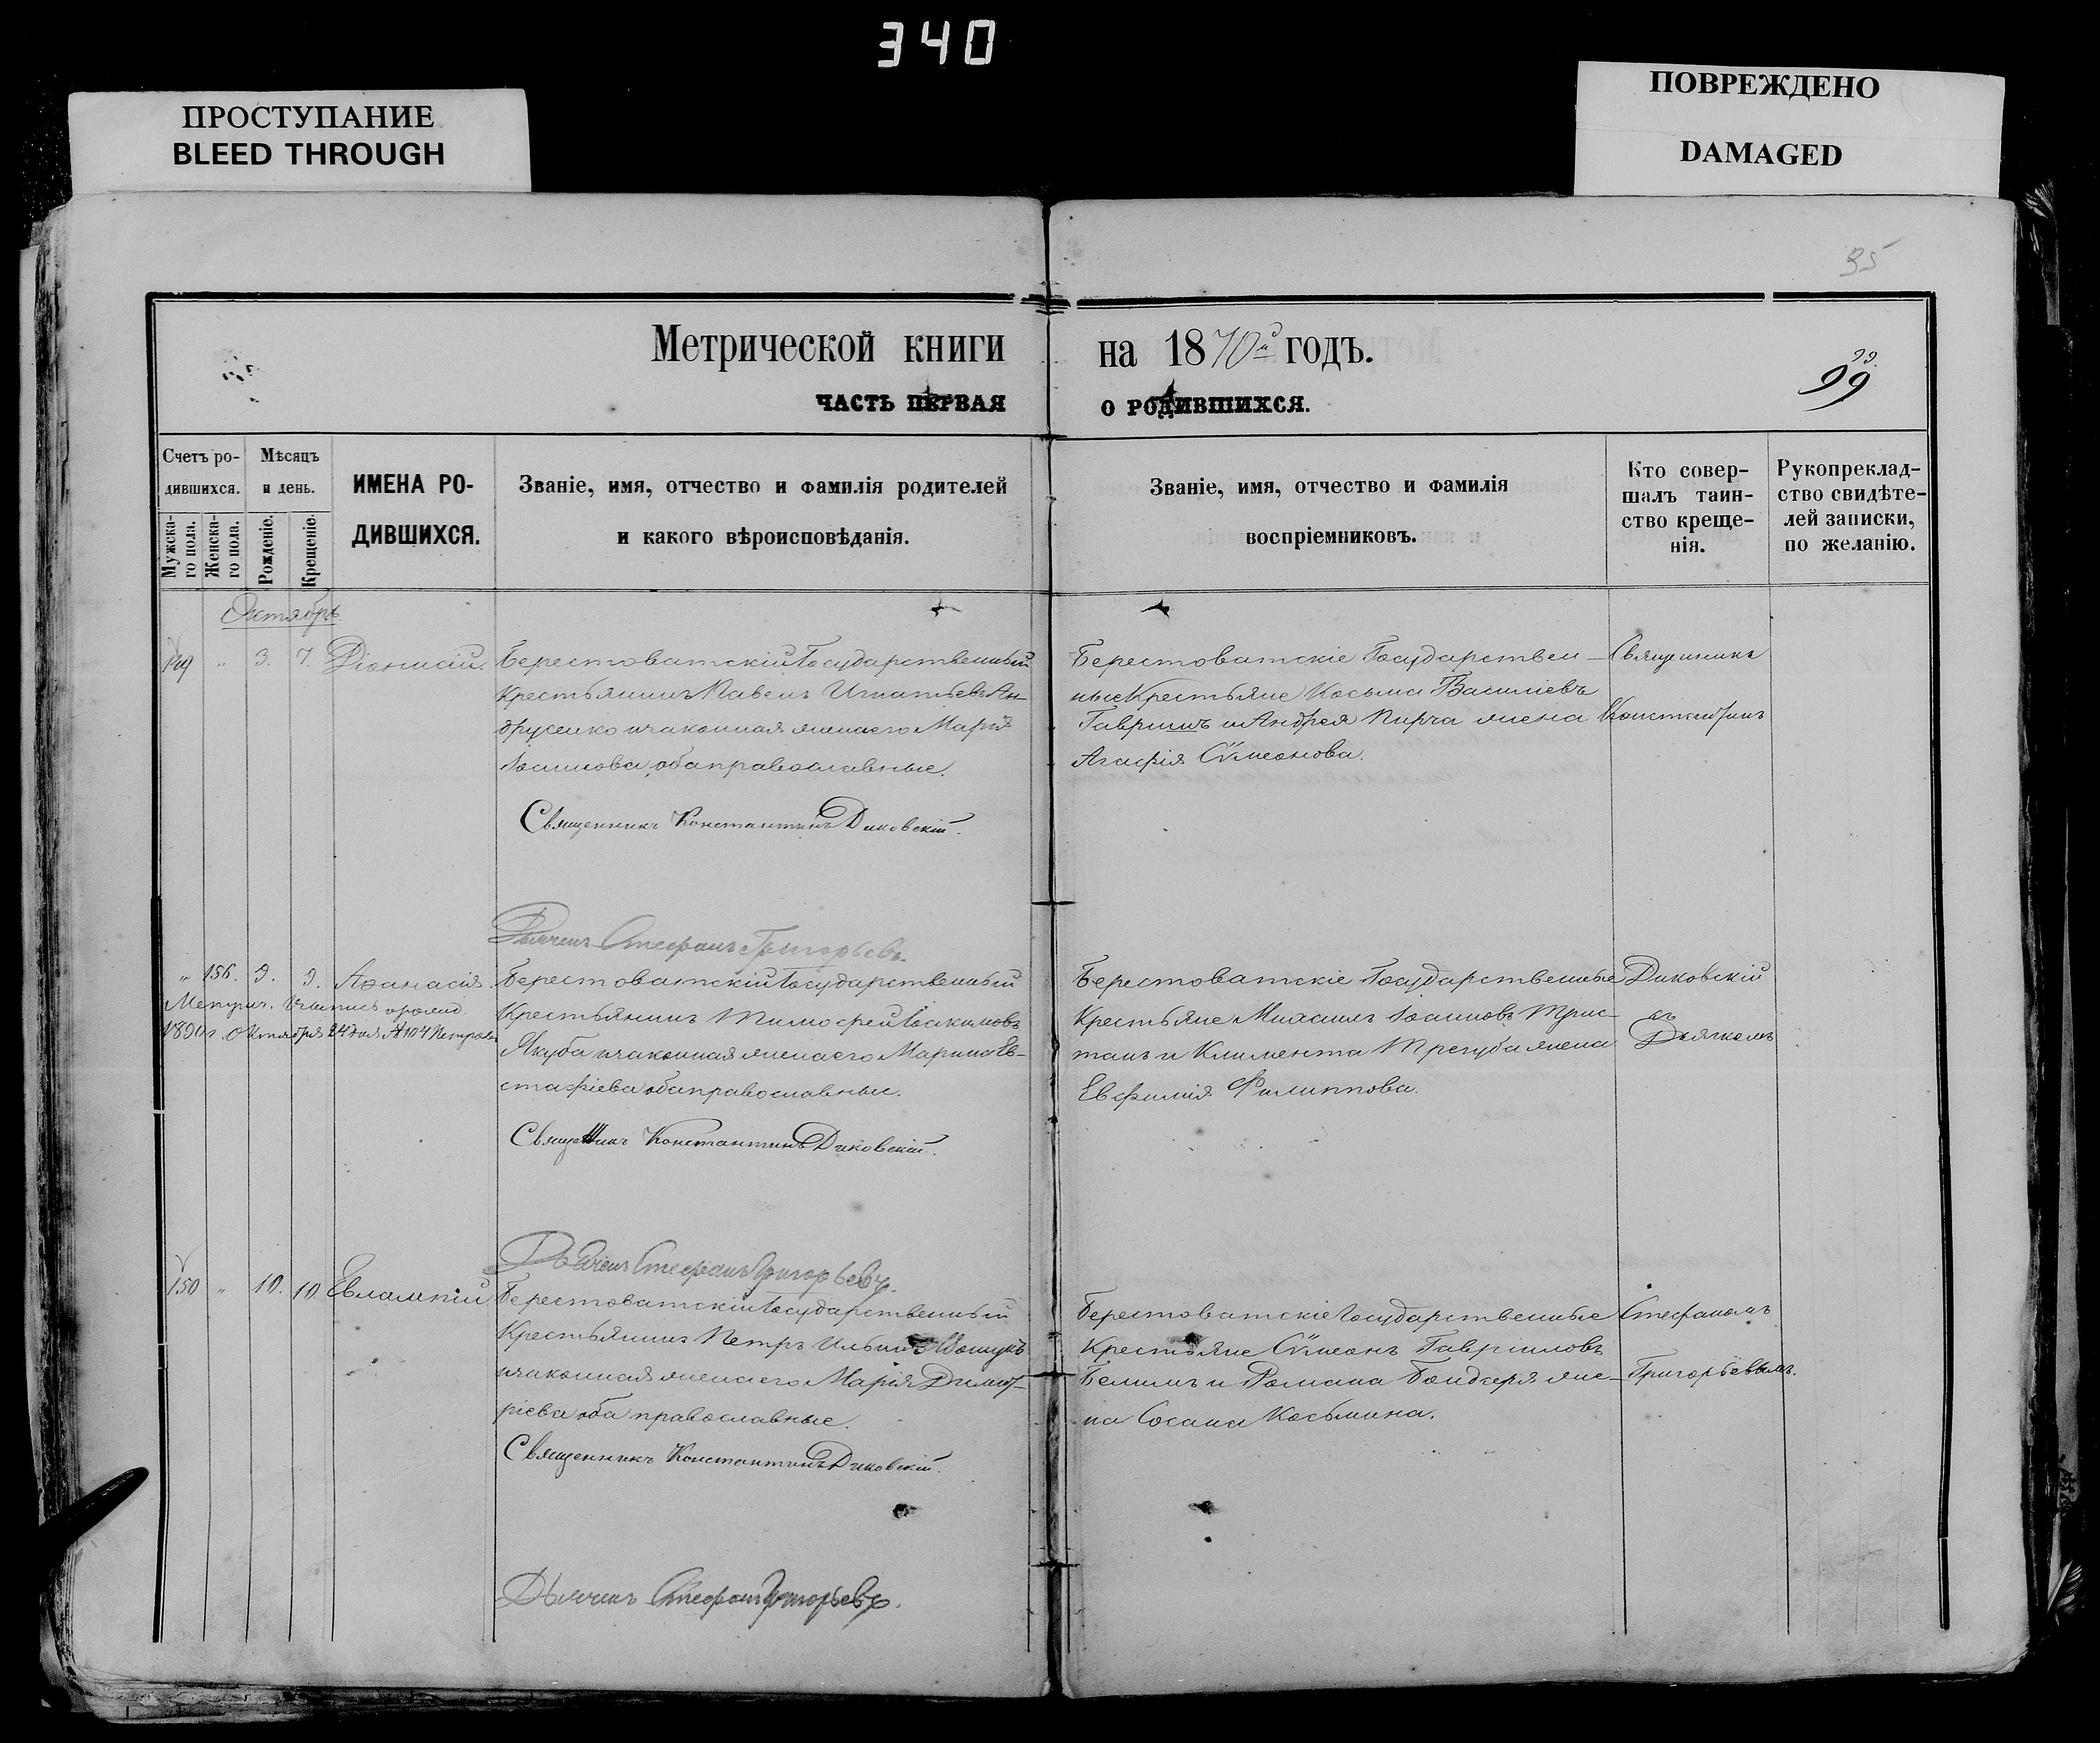 340
ПРОСТУПАНИЕ
BLEED THROUGH
ПОВРЕЖДЕНО
DAMAGED
95
Метрической книги на 1870й годъ.
99
99.
ЧАСТЬ ПЕРВАЯ О РОДИВШИХСЯ.
Счетъ ро-
дившихся.
Мѣсяцъ
и день.
Мужска-
го пола.
Женска-
го пола.
Рожденіе.
Крещеніе.
ИМЕНА РО-
ДИВШИХСЯ.
Званіе, имя, отчество и фамилія родителей
и какого вѣроисповѣданія.
Званіе, имя, отчество и фамилія
воспріемниковъ.
Кто совер-
шалъ таин-
ство креще-
нія.
Рукопреклад-
ство свидѣте-
лей записки,
по желанію.
Октябрь
149 " 3. 7. Діонисій.
Берестоватскій Государственный
Крестьянинъ Павелъ Игнатьевъ Ан-
друсенко и законная жена его Марія
Іоаннова, оба православные.
Священникъ Константинъ Диковскій.
Дьячекъ Стефанъ Григорьевъ.
Берестоватскіе Государствен-
ные Крестьяне Косьма Василіевъ
Гавришъ и Андрея Пирча жена
Агафія Сѵмеонова.
Священникъ
Константинъ
" 156. 9. 9. Аѳанасія.
Метрич. Выпись о рожд.
1890 г. Октября 24 дня №104
Берестоватскій Государственный
Крестьянинъ Тимофей Іоакимовъ
Якуба и законная жена его Марина Ев-
стафіева оба православные.
Священникъ Константинъ Диковскій.
Дьячекъ Стефанъ Григорьевъ.
Берестоватскіе Государственные
Крестьяне Михаилъ Іоанновъ Трис-
танъ и Климента Трегуба жена
Евфимія Филиппова.
Диковскій
съ
Дьячкомъ
150 " 10. 10. Евлампій
Берестоватскій Государственный
Крестьянинъ Петръ Ильинъ
и законная жена его Марія Димит-
ріева оба православные.
Священникъ Константинъ Диковскій.
Дьячекъ Стефанъ Григорьевъ.
Берестоватскіе Государственные
Крестьяне Сѵмеонъ Гавріиловъ
Белимъ и Романа Бондаря же-
на Сосана Косьмина.
Стефаномъ
Григорьевымъ.